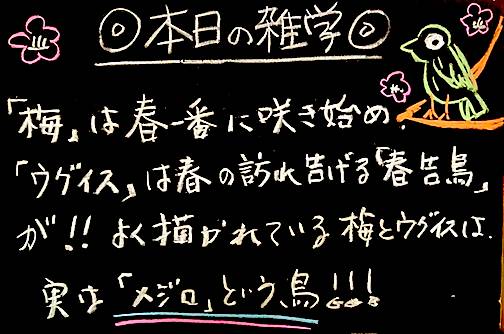 ◎本日の雑学◎
「梅」は春一番に咲き始め、
「ウグイス」は春の訪れ告げる「春告鳥」
が!! よく描かれている梅とウグイスは、
実は「メジロ」という鳥!!!